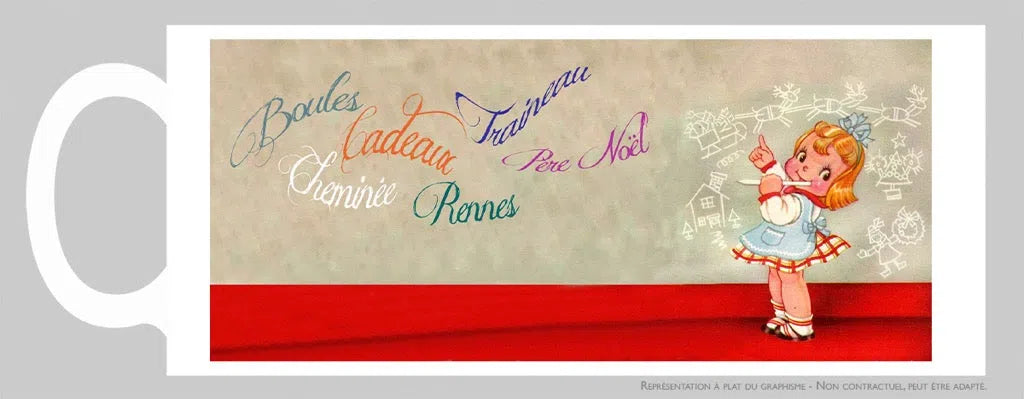 Boules
Cadeaux
Traineau
Cheminée
Père Noël
Rennes
Représentation à plat du graphisme - Non contractuel, peut être adapté.